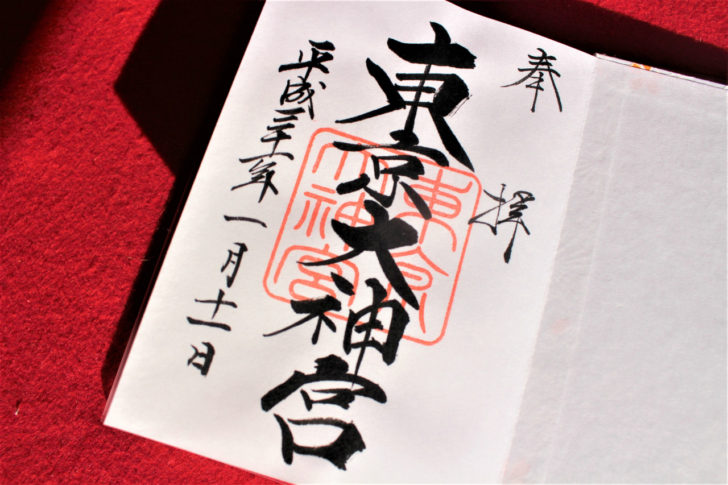 奉拝
東京大神宮
平成三十一年一月十一日
東京
大神宮